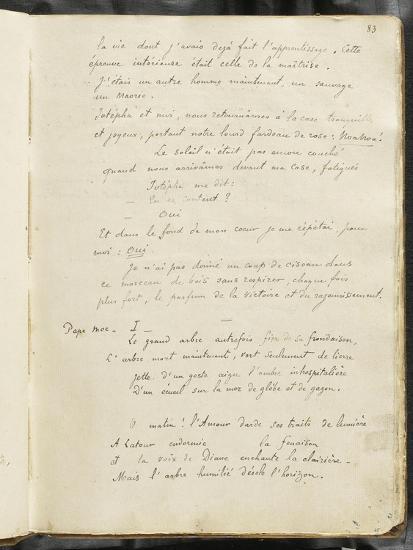 83
la vie dont j'avais dejà fait l'apprentissage. Cette
épreuve intérieure était celle de la maîtrise.
J'étais un autre homme maintenant, un sauvage
un Maorie.
Jotépha et moi, nous retournâmes à la case tranquilles
et joyeux, portant notre lourd fardeau de rose: Noanoa!
Le soleil n'était pas encore couché
quand nous arrivâmes devant ma case, fatigués
Jotépha me dit:
— Tu es content?
— Oui
Et dans le fond de mon cœur je me répétai, pour
moi: Oui
Je n'ai pas donné un coup de ciseau dans
ce morceau de bois sans respirer, chaque fois
plus fort, le parfum de la victoire et du rajeunissement.
Pape moe - I —
Le grand arbre autrefois fier de sa frondaison,
L'arbre mort maintenant, vert seulement de lierre
jette d'un geste aigu l'ombre inhospitalière
D'un écueil sur la mer de glèbe et de gazon.
O matin! l'Amour darde ses traits de lumière
A Latour endormie la fenaison
et la voix de Diane enchante la clairière -
Mais l'arbre humilié désole l'horizon.